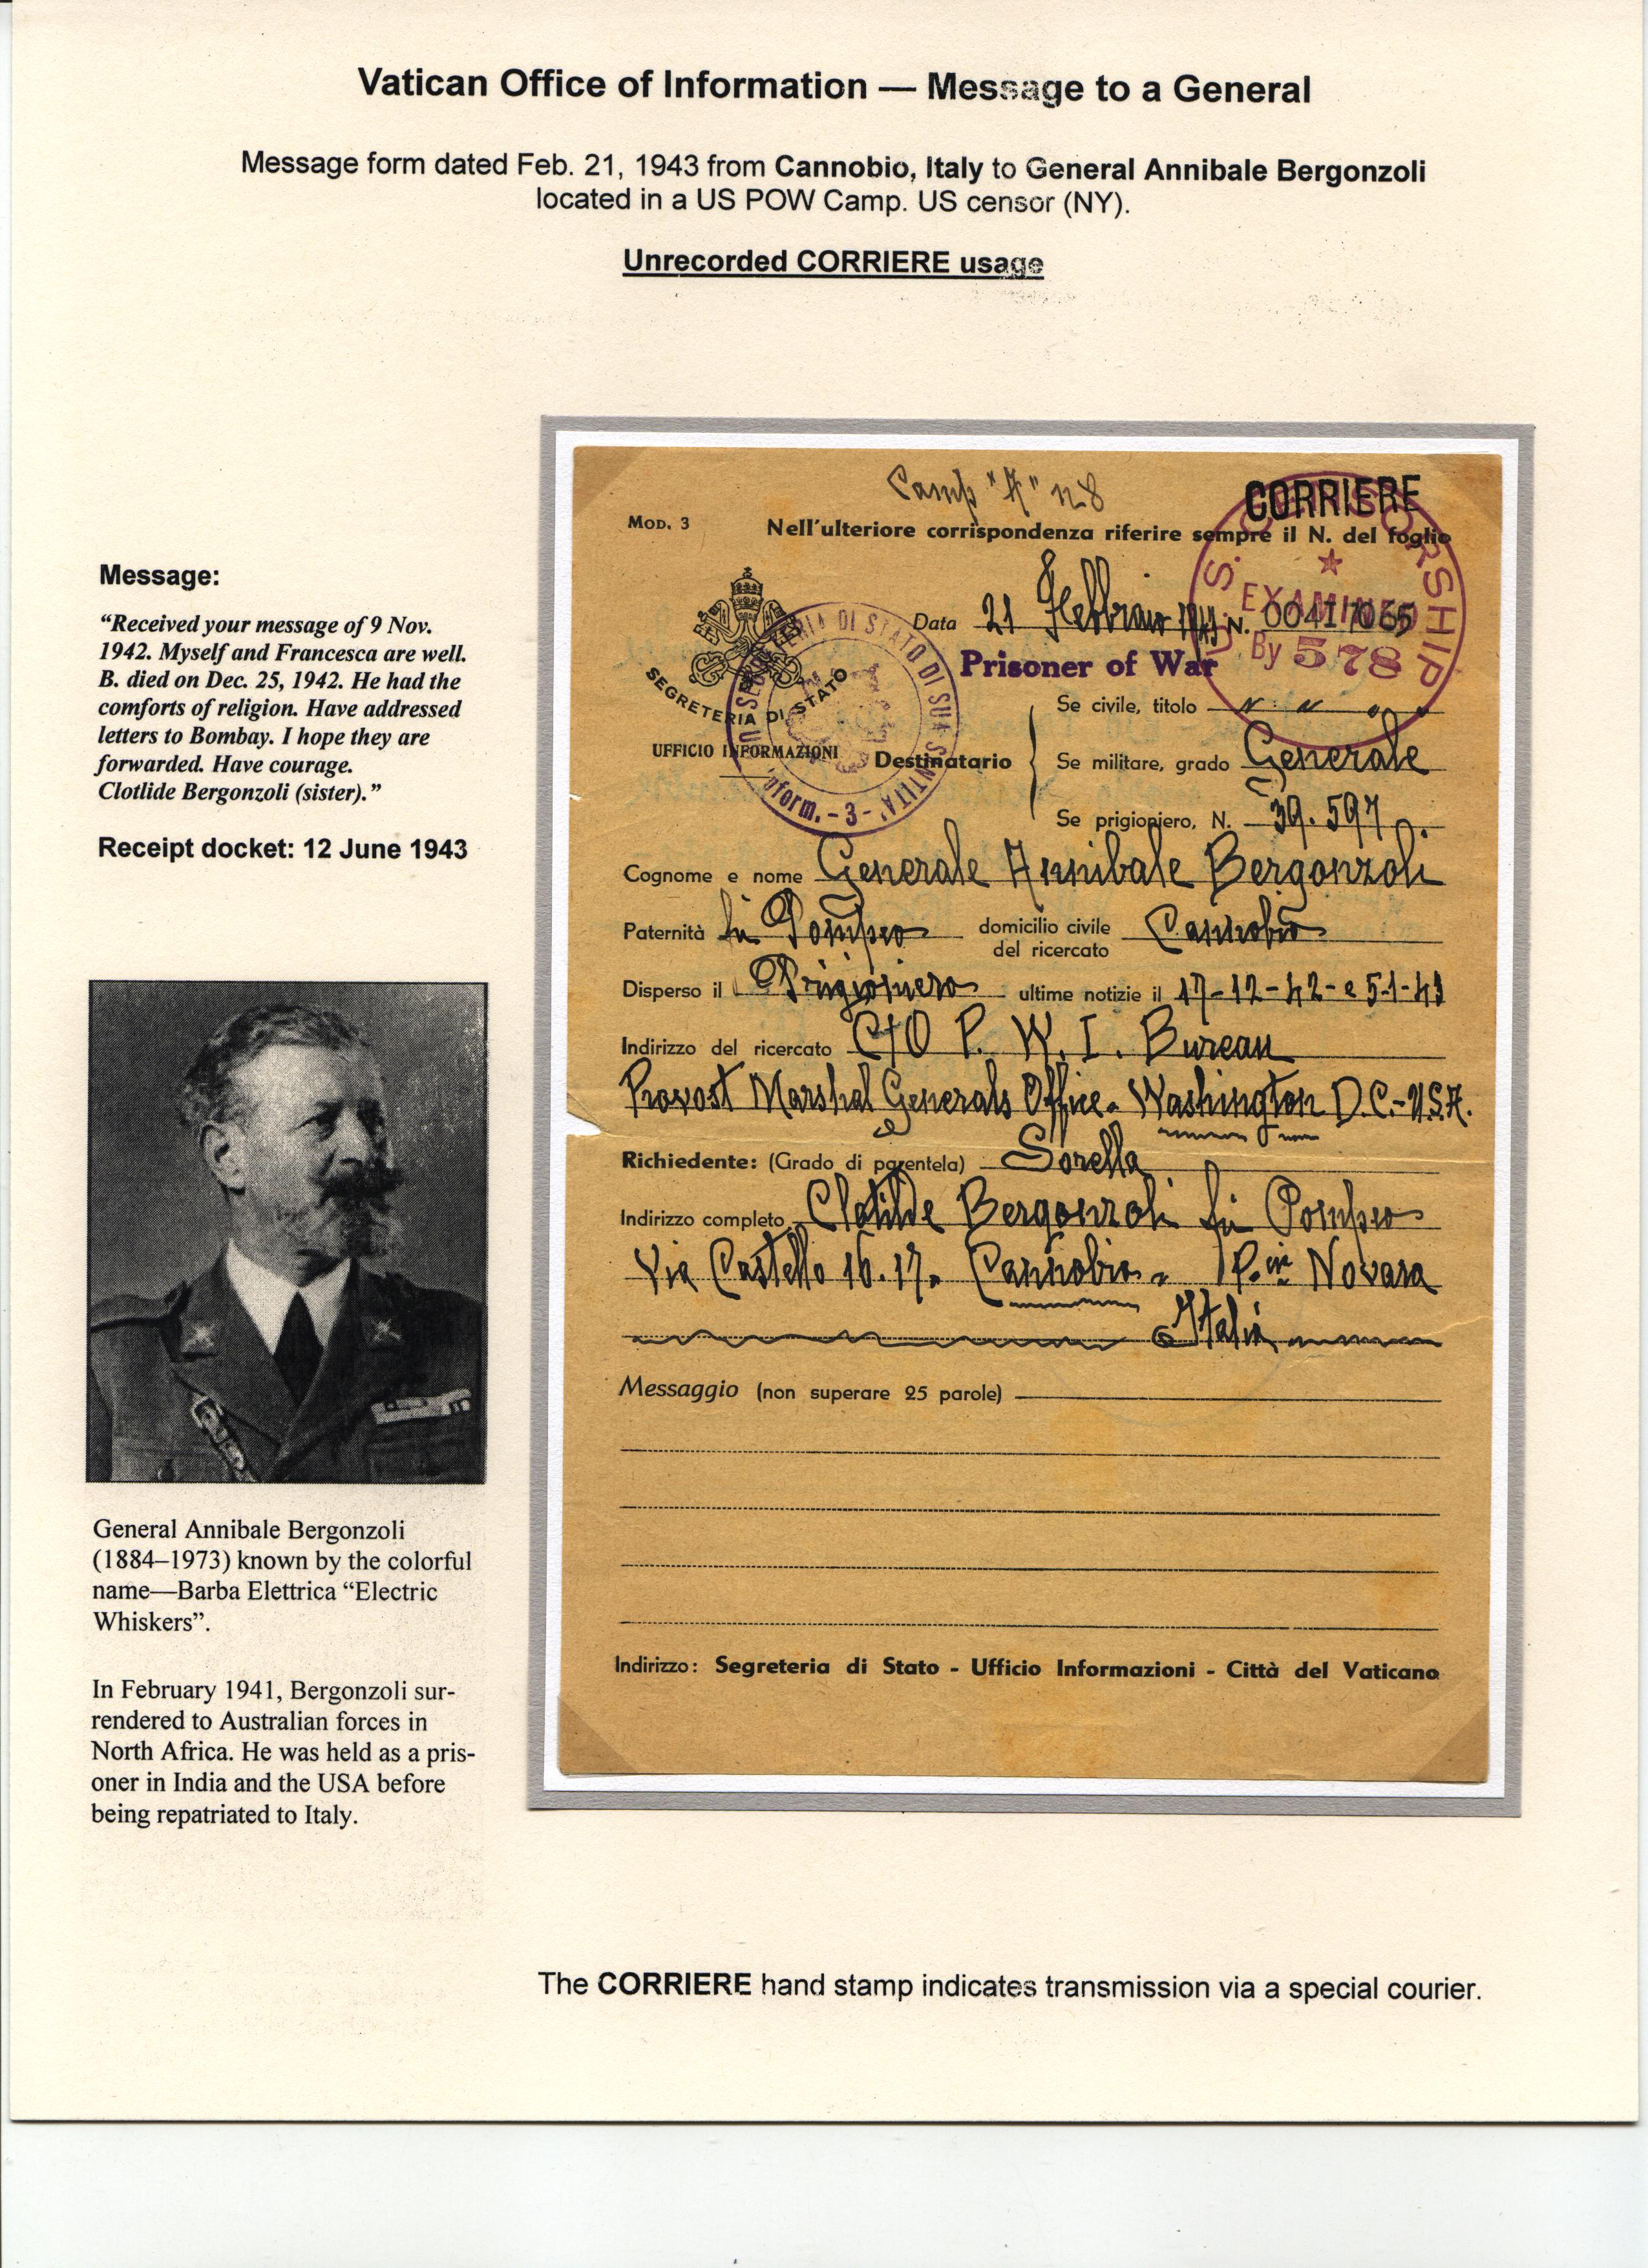 Vatican Office of Information — Message to a General
Message form dated Feb. 21, 1943 from Cannobio, Italy to General Annibale Bergonzoli
located in a US POW Camp. US censor (NY).
Unrecorded CORRIERE usage
Message:
“Received your message of 9 Nov.
1942. Myself and Francesca are well.
B. died on Dec. 25, 1942. He had the
comforts of religion. Have addressed
letters to Bombay. I hope they are
forwarded. Have courage.
Clotlide Bergonzoli (sister).”
Receipt docket: 12 June 1943
General Annibale Bergonzoli
(1884–1973) known by the colorful
name—Barba Elettrica “Electric
Whiskers”.
In February 1941, Bergonzoli sur-
rendered to Australian forces in
North Africa. He was held as a pris-
oner in India and the USA before
being repatriated to Italy.
Camp "A" n 8
CORRIERE
Mod. 3
Nell'ulteriore corrispondenza riferire sempre il N. del foglio
U.S. CENSORSHIP
EXAMINED
By 578
Data 21 Febbraio N.
Prisoner of War
SEGRETERIA DI STATO
UFFICIO INFORMAZIONI
SEGRETERIA DI STATO DI SUA SANTITA'
Inform. - 3 -
Destinatario
Se civile, titolo " " " "
Se militare, grado Generale
Se prigioniero, N. 39.597.
Cognome e nome Generale Annibale Bergonzoli
Paternità fu Pompeo domicilio civile del ricercato Cannobio
Disperso il Prigioniero ultime notizie il 17-12-42- e 5-1-43
Indirizzo del ricercato C/O P. W. I. Bureau
Provost Marshal Generals Office. Washington D.C.-U.S.A.
Richiedente: (Grado di parentela) Sorella
Indirizzo completo Clotilde Bergonzoli fu Pompeo
Via Castello 16.17. Cannobio - P.cia Novara
Italia
Messaggio (non superare 25 parole)
Indirizzo: Segreteria di Stato - Ufficio Informazioni - Città del Vaticano
The CORRIERE hand stamp indicates transmission via a special courier.